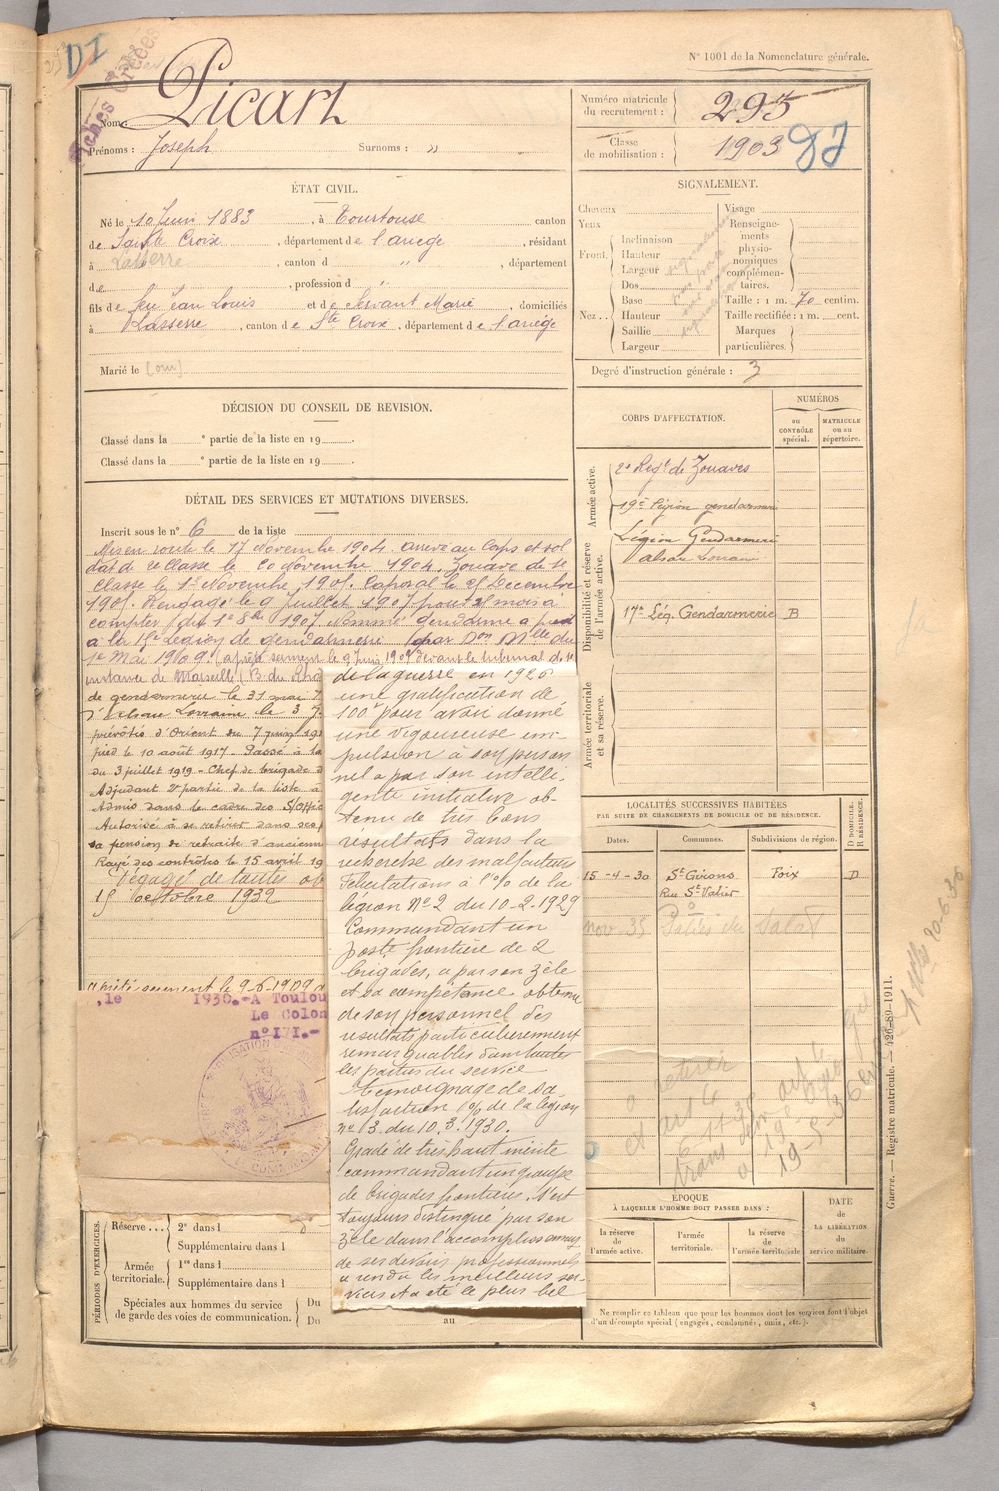 DI
Fiches Créées
N° 1001 de la Nomenclature générale.
Nom : Picart
Prénoms : Joseph Surnoms : "
Numéro matricule du recrutement : 295
Classe de mobilisation : 1903
ÉTAT CIVIL.
Né le 10 Juin 1883, à Tourtouse canton
de Sainte Croix, département de l'ariège, résidant
à Lasserre, canton d " , département
de , profession d "
fils de feu Jean Louis et de Servant Marie domiciliés
à Lasserre, canton de Ste Croix, département de l'ariège
Marié le [om]
SIGNALEMENT.
Cheveux
Yeux
Front. Inclinaison
Hauteur
Largeur
Dos
Nez.. Base
Hauteur
Saillie
Largeur
Visage
Renseignements physionomiques complémentaires.
Taille : 1 m. 70 centim.
Taille rectifiée : 1 m. cent.
Marques particulières.
Degré d'instruction générale : 3
DÉCISION DU CONSEIL DE REVISION.
Classé dans la ° partie de la liste en 19 .
Classé dans la ° partie de la liste en 19 .
DÉTAIL DES SERVICES ET MUTATIONS DIVERSES.
Inscrit sous le n° 6 de la liste
Mis en route le 17 Novembre 1904. arrivé au Corps et sol
dat de 2e classe le 20 Novembre 1904. Zouave de 1e
classe le 1er Novembre 1905. Caporal le 25 Decembre
1905. Rengagé le 9 Juillet 1907 pour mois à
compter du 1er 8bre 1907 Nommé Gendarme a pied
à la 15e Légion de gendarmerie par Don Mlle du
1er Mai 1909. (a prêté serment le 9 Juin 1909 devant le tribunal de 1e
instance de Marseille (B. du Rhô
de gendarmerie le 31 mai
d'Alsace Lorraine le 3 J
prévôtés d'Orient du 7 juin 191
pied le 10 août 1917. Passé à la
du 3 juillet 1919 - Chef de brigade d
Adjudant 2e partie de la liste à
Admis dans le cadre des S/offic
Autorisé à se retirer dans ses
sa pension de retraite d'ancien
Rayé des contrôles le 15 avril 19
Dégagé de toutes ob
15 octobre 1932
a prêté serment le 9-6-1909 d
,le 1930.-A Toulou
Le Colon
n°171.-
de la guerre en 1926
une gratification de
100f pour avoir donné
une vigoureuse im-
pulsion à son person
nel a par son intelli-
gente initiative ob-
tenu de très bons
résultats dans la
recherche des malfaiteurs
Félicitations à l'% de la
légion N°2 du 10-2-1929
Commandant un
poste frontière de 2
brigades, a par son zèle
et sa compétence obtenu
de son personnel des
résultats particulièrement
remarquables dans toutes
les parties du service
Témoignage de sa
tisfaction % de la légion
n° 3 du 10.3.1930.
Gradé de très haut mérite
commandant un groupe
de brigades frontières. S'est
toujours distingué par son
zèle dans l'accomplissement
de ses devoirs professionnels
a rendu les meilleurs ser
vices et a été le plus bel
CORPS D'AFFECTATION.
NUMÉROS
au CONTRÔLE spécial.
MATRICULE ou au répertoire.
Armée active.
2e Regt de Zouaves
19e légion gendarmerie
Disponibilité et réserve de l'armée active.
Légion Gendarmerie
alsace Lorraine
17e Lég. Gendarmerie B
Armée territoriale et sa réserve.
LOCALITÉS SUCCESSIVES HABITÉES
PAR SUITE DE CHANGEMENTS DE DOMICILE OU DE RÉSIDENCE.
Dates. Communes. Subdivisions de région. D DOMICILE. R RÉSIDENCE.
15-4-30 St Girons Foix D
Rue St Valier
nov-35 Salat
19-5-36
ÉPOQUE
À LAQUELLE L'HOMME DOIT PASSER DANS :
la réserve de l'armée active.
l'armée territoriale.
la réserve de l'armée territoriale
DATE DE LA LIBÉRATION du service militaire.
PÉRIODES D'EXERCICES.
Réserve... 2e dans l
Supplémentaire dans l
Armée territoriale. 1re dans l
Supplémentaire dans l
Spéciales aux hommes du service de garde des voies de communication. Du au
Du
Ne remplir ce tableau que pour les hommes dont les services font l'objet
d'un décompte spécial (engagés, condamnés, omis, etc.).
Guerre. — Registre matricule. — 426-89-1911.